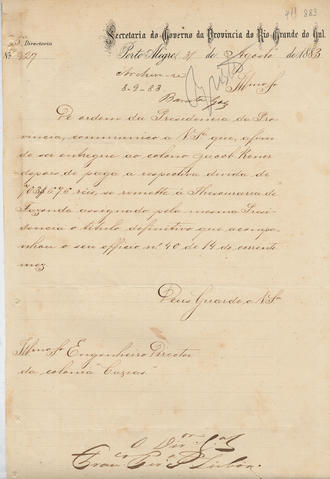 711 883
Secretaria do Governo da Provincia do Rio Grande do Sul.
Directoria
Porto Alegre, 31 de Agosto de 1883
Nº 427
Archive-se
Illmo. Sr.
8-9-83
De ordem da Presidencia da Pro-
vincia, communico a V. Sª que, afim
de ser entregue ao colono Jacob Rener
depois de paga a respectiva divida de
703$676 réis, se remette á Thesouraria de
Fazenda assignado pela mesma Presi-
dencia o titulo definitivo que acompa-
nhou o seu officio nº 40 de 14 do corrente
mez
Deus Guarde a V. Sª
Illmo. Sr. Engenheiro Director
da colonia "Caxias"
O Dir.or G.al
Fran.co Per.a Lisboa